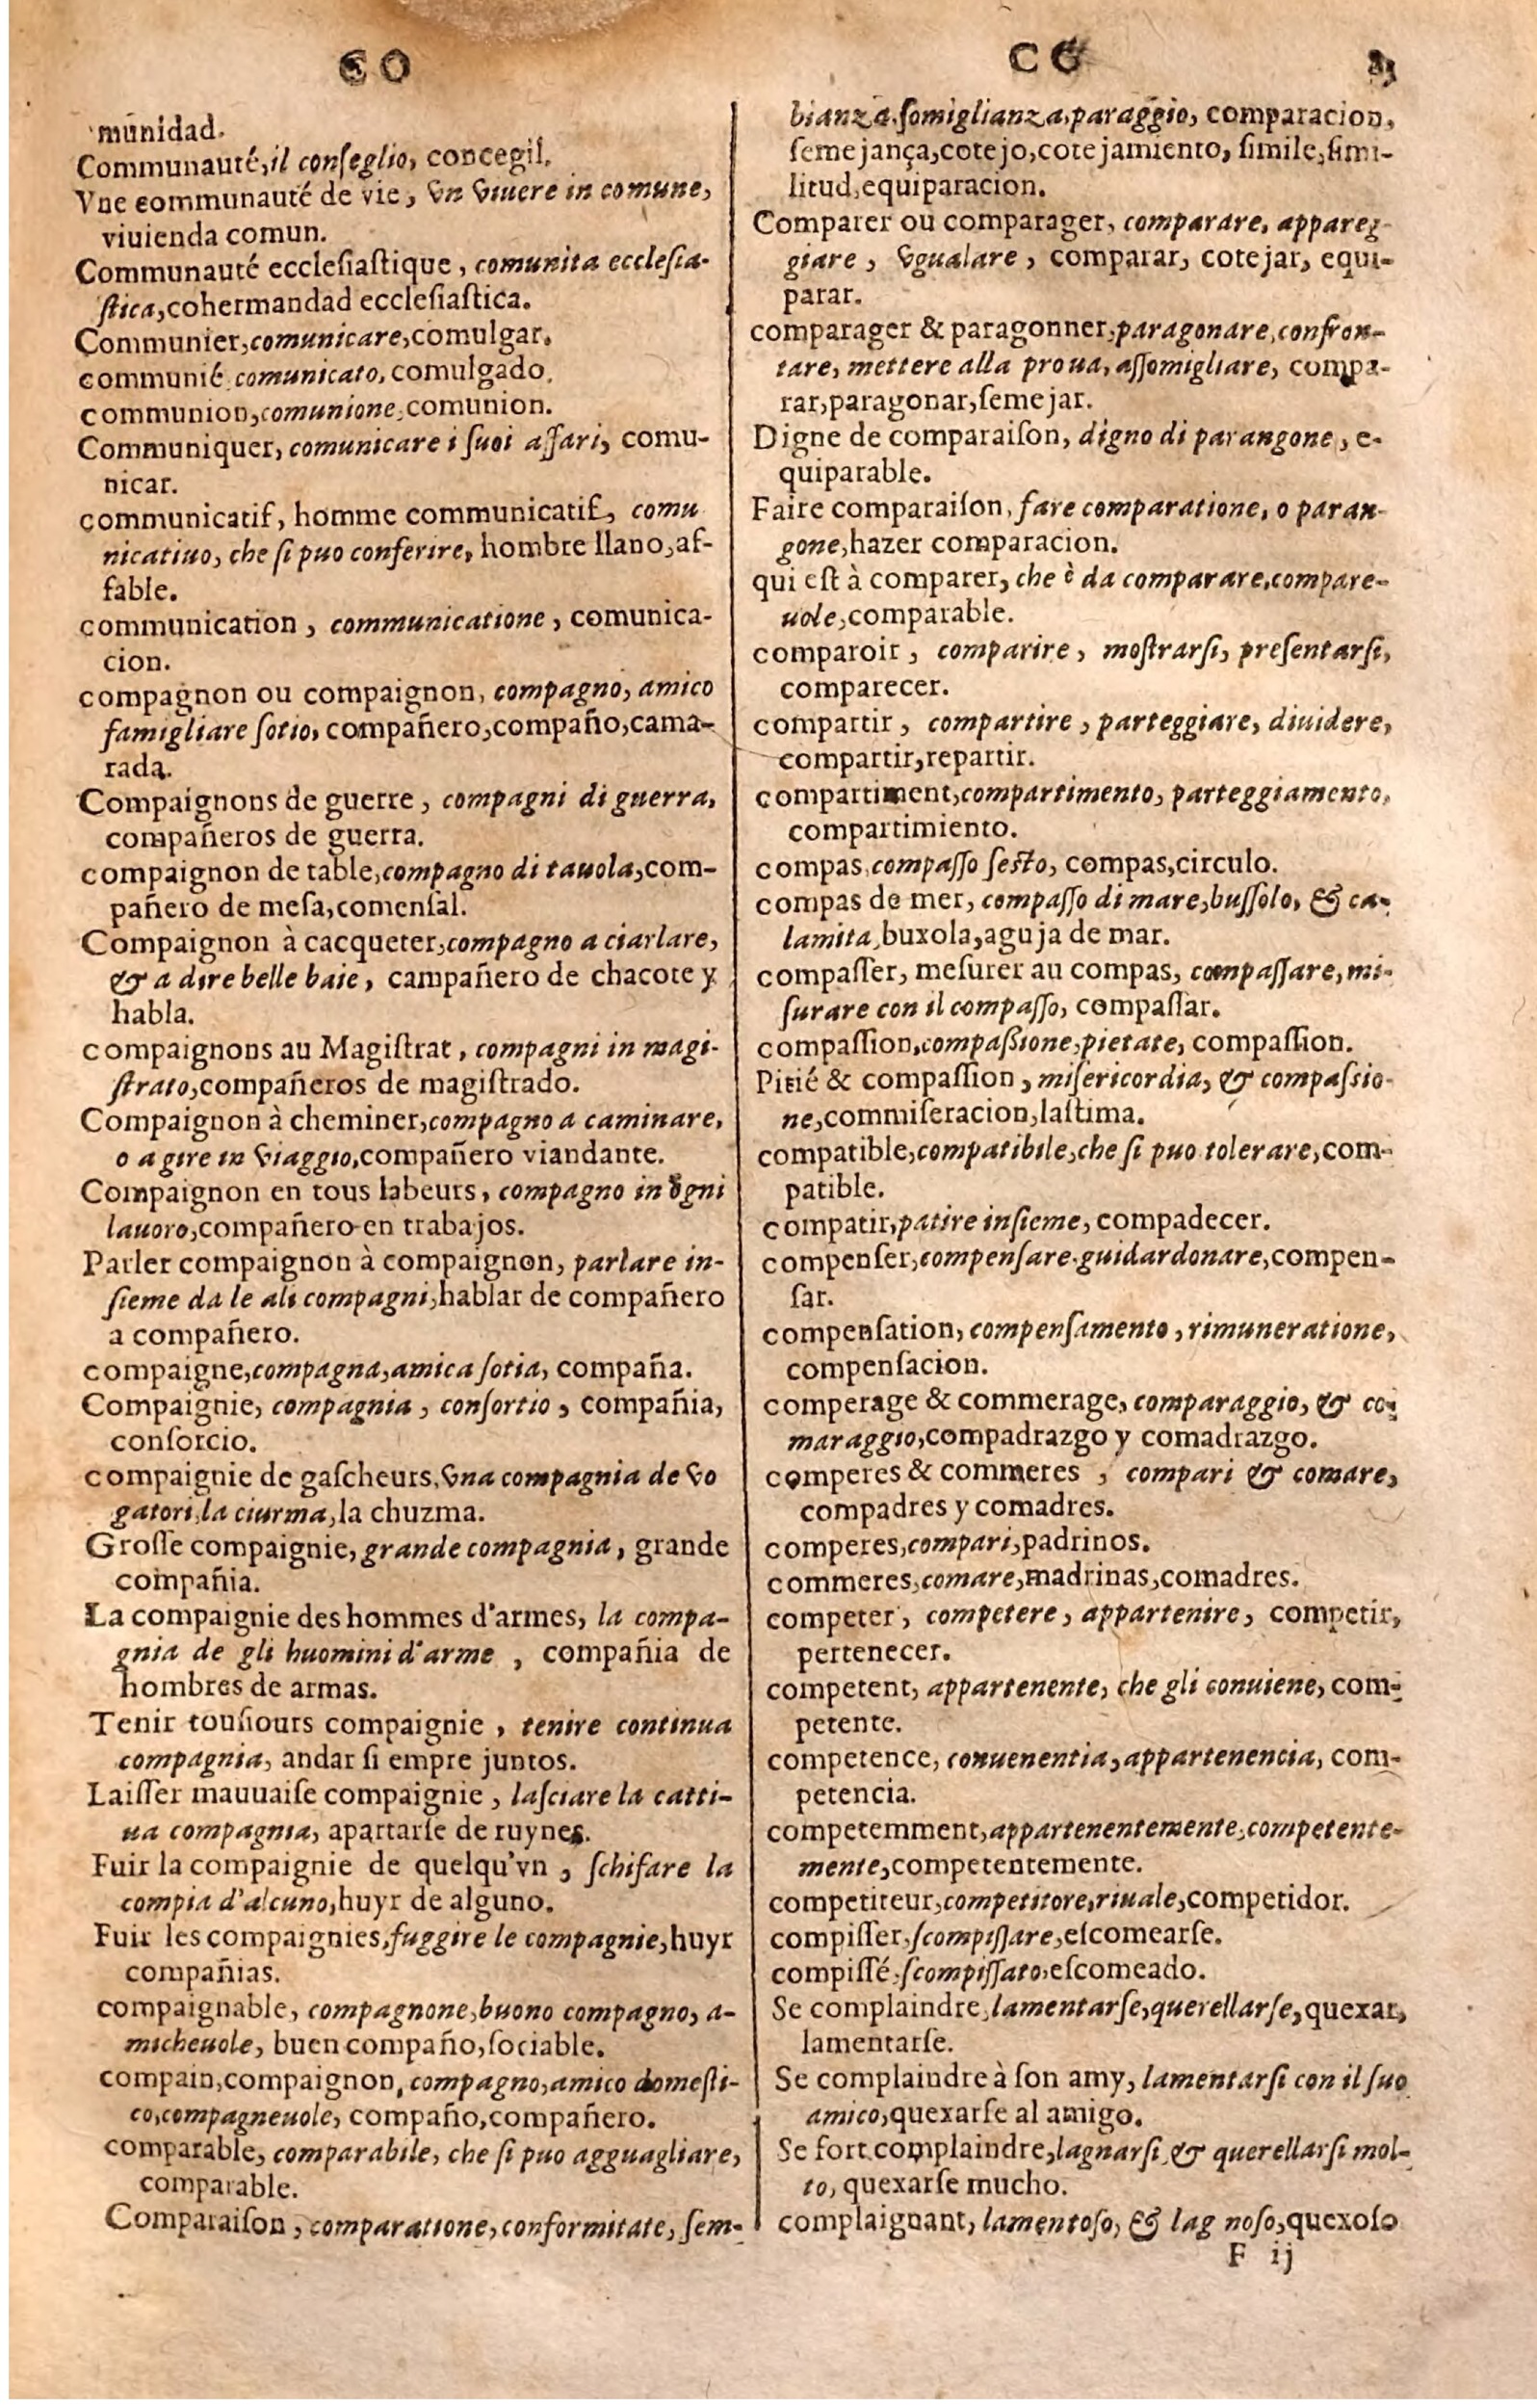 CO
munidad.
Communauté, il conseglio, concegil.
Vne communauté de vie, vn viuere in comune,
viuienda comun.
Communauté ecclesiaſtique, comunita ecclesia-
ſtica, cohermandad ecclesiaſtica.
Communier, comunicare, comulgar.
communié, comunicato, comulgado.
communion, comunione, comunion.
Communiquer, comunicare i ſuoi affari, comu-
nicar.
communicatif, homme communicatif, comu
nicatiuo, che ſi puo conferire, hombre llano, af-
fable.
communication, communicatione, comunica-
cion.
compagnon ou compaignon, compagno, amico
famigliare ſotio, compañero, compaño, cama-
rada.
Compaignons de guerre, compagni di guerra,
compañeros de guerra.
compaignon de table, compagno di tauola, com-
pañero de meſa, comenſal.
Compaignon à cacqueter, compagno a ciarlare,
& a dire belle baie, campañero de chacote y
habla.
compaignons au Magiſtrat, compagni in magi-
ſtrato, compañeros de magiſtrado.
Compaignon à cheminer, compagno a caminare,
o a gire in viaggio, compañero viandante.
Compaignon en tous labeurs, compagno in ogni
lauoro, compañero en trabajos.
Parler compaignon à compaignon, parlare in-
ſieme da le ali compagni, hablar de compañero
a compañero.
compaigne, compagna, amica ſotia, compaña.
Compaignie, compagnia, conſortio, compañia,
conſorcio.
compaignie de gaſcheurs, vna compagnia de vo
gatori, la ciurma, la chuzma.
Groſſe compaignie, grande compagnia, grande
compañia.
La compaignie des hommes d'armes, la compa-
gnia de gli huomini d'arme, compañia de
hombres de armas.
Tenir touſiours compaignie, tenire continua
compagnia, andar ſi empre juntos.
Laiſſer mauuaiſe compaignie, laſciare la catti-
ua compagnia, apartarſe de ruynes.
Fuir la compaignie de quelqu'vn, ſchifare la
compia d'alcuno, huyr de alguno.
Fuir les compaignies, fuggire le compagnie, huyr
compañias.
compaignable, compagnone, buono compagno, a-
micheuole, buen compaño, ſociable.
compain, compaignon, compagno, amico domeſti-
co, compagneuole, compaño, compañero.
comparable, comparabile, che ſi puo agguagliare,
comparable.
Comparaiſon, comparatione, conformitate, ſem-
CO
bianza, ſomiglianza, paraggio, comparacion,
ſemejança, cotejo, cotejamiento, ſimile, ſimi-
litud, equiparacion.
Comparer ou comparager, comparare, appareg-
giare, vgualare, comparar, cotejar, equi-
parar.
comparager & paragonner, paragonare, confron-
tare, mettere alla proua, aſſomigliare, compa-
rar, paragonar, ſemejar.
Digne de comparaiſon, digno di parangone, e-
quiparable.
Faire comparaiſon, fare comparatione, o paran-
gone, hazer comparacion.
qui eſt à comparer, che è da comparare, compare-
uole, comparable.
comparoir, comparire, moſtrarſi, preſentarſi,
comparecer.
compartir, compartire, parteggiare, diuidere,
compartir, repartir.
compartiment, compartimento, parteggiamento,
compartimiento.
compas, compaſſo ſeſto, compas, circulo.
compas de mer, compaſſo di mare, buſſolo, & ca-
lamita, buxola, aguja de mar.
compaſſer, meſurer au compas, compaſſare, mi-
ſurare con il compaſſo, compaſſar.
compaſſion, compaßione, pietate, compaſſion.
Pitié & compaſſion, miſericordia, & compaſſio-
ne, commiſeracion, laſtima.
compatible, compatibile, che ſi puo tolerare, com-
patible.
compatir, patire inſieme, compadecer.
compenſer, compenſare, guidardonare, compen-
ſar.
compenſation, compenſamento, rimuneratione,
compenſacion.
comperage & commerage, comparaggio, & co-
maraggio, compadrazgo y comadrazgo.
comperes & commeres, compari & comare,
compadres y comadres.
comperes, compari, padrinos.
commeres, comare, madrinas, comadres.
competer, competere, appartenire, competir,
pertenecer.
competent, appartenente, che gli conuiene, com-
petente.
competence, conuenentia, appartenencia, com-
petencia.
competemment, appartenentemente, competente-
mente, competentemente.
competiteur, competitore, riuale, competidor.
compiſſer, ſcompiſſare, eſcomearſe.
compiſſé, ſcompiſſato, eſcomeado.
Se complaindre, lamentarſe, querellarſe, quexar,
lamentarſe.
Se complaindre à ſon amy, lamentarſi con il ſuo
amico, quexarſe al amigo.
Se fort complaindre, lagnarſi, & querellarſi mol-
to, quexarſe mucho.
complaignant, lamentoſo, & lag noſo, quexoſo
F ij